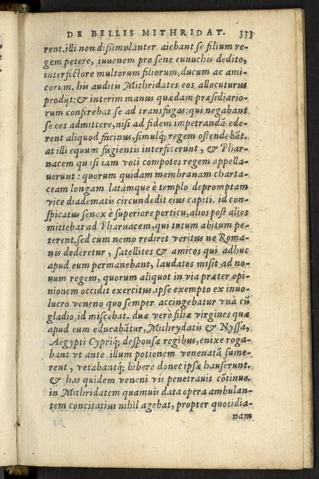 DE BELLIS MITHRIDAT. 333
rent. illi non dissimulanter aiebant se filium re-
gem petere, iuuenem pro sene eunuchis dedito,
interfictore multorum filiorum, ducum ac ami-
corum. his auditis Mithridates eos allocuturus
prodijt: & interim manus quædam præsidiario-
rum confirebat se ad transfugas: qui negabant
se eos admittere, nisi ad fidem impetrandā ede-
rent aliquod facinus, simulq; regem ostendebāt.
at illi equum fugientis interficerunt, & Phar-
nacem quasi iam voti compotes regem appella-
uerunt: quorum quidam membranam charta-
ceam longam latamque è templo depromptam
vice diadematis circundedit eius capiti. id con-
spicatus senex è superiore porticu, alios post alios
mittebat ad Pharnacem, qui tutum abitum pe-
terent, sed cum nemo rediret veritus ne Roma-
nis dederetur, satellites & amicos qui adhuc
apud eum permanebant, laudatos misit ad no-
uum regem, quorum aliquot in via præter opi-
nionem occidit exercitus. ipse exempto ex inuo-
lucro veneno quo semper accingebatur vnà cū
gladio, id miscebat. duæ verò filiæ virgines quæ
apud eum educabātur, Mithrydatis & Nyssa,
Aegypti Cypriq; desponsæ regibus, enixe roga-
bant vt ante illum potionem venenatā sume-
rent, vetabantq; bibere donec ipsæ hauserunt.
& has quidem veneni vis penetrauit cōtinuo.
in Mithridatem quamuis data opera ambulan-
tem concitatius nihil agebat, propter quotidia-
nam